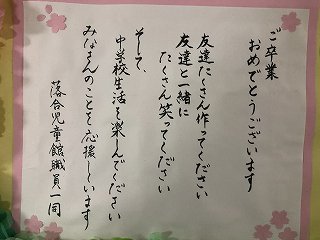 ご卒業
おめでとうございます
友達たくさん作ってください
友達と一緒に
たくさん笑ってください
そして、
中学校生活を楽しんでください
みなさんのことを応援しています
落合児童館職員一同